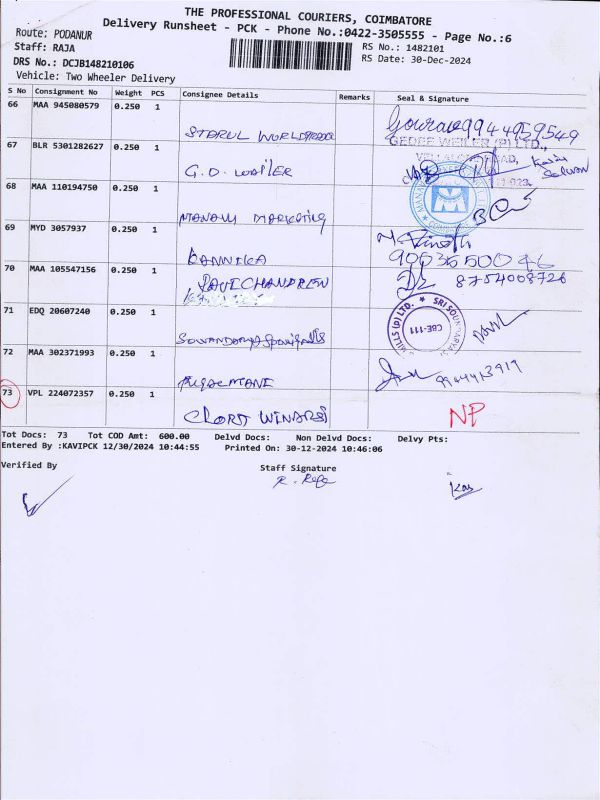 THE PROFESSIONAL COURIERS, COIMBATORE
Delivery Runsheet - PCK - Phone No.:0422-3505555 - Page No.:6
Route: PODANUR
RS No.: 1482101
Staff: RAJA
RS Date: 30-Dec-2024
DRS No.: DCJB148210106
Vehicle: Two Wheeler Delivery
S No Consignment No Weight PCS Consignee Details Remarks Seal & Signature
66 MAA 945080579 0.250 1
Gourav 9944959549
67 BLR 5301282627 0.250 1 GEDEE WEILER (P) LTD.,
G.D. Weiler
68 MAA 110194750 0.250 1
Manavi Marketing
69 MYD 3057937 0.250 1
KANNIKA
70 MAA 105547156 0.250 1 RAVICHANDREN 8754008726
71 EDQ 20607240 0.250 1 MILLS (P) LTD. * SRI SOUNDARYAA
CBE-111
72 MAA 302371993 0.250 1
9944413919
73 VPL 224072357 0.250 1
NP
Tot Docs: 73 Tot COD Amt: 600.00 Delvd Docs: Non Delvd Docs: Delvy Pts:
Entered By :KAVIPCK 12/30/2024 10:44:55 Printed On: 30-12-2024 10:46:06
Verified By Staff Signature
R. Raja
Kas